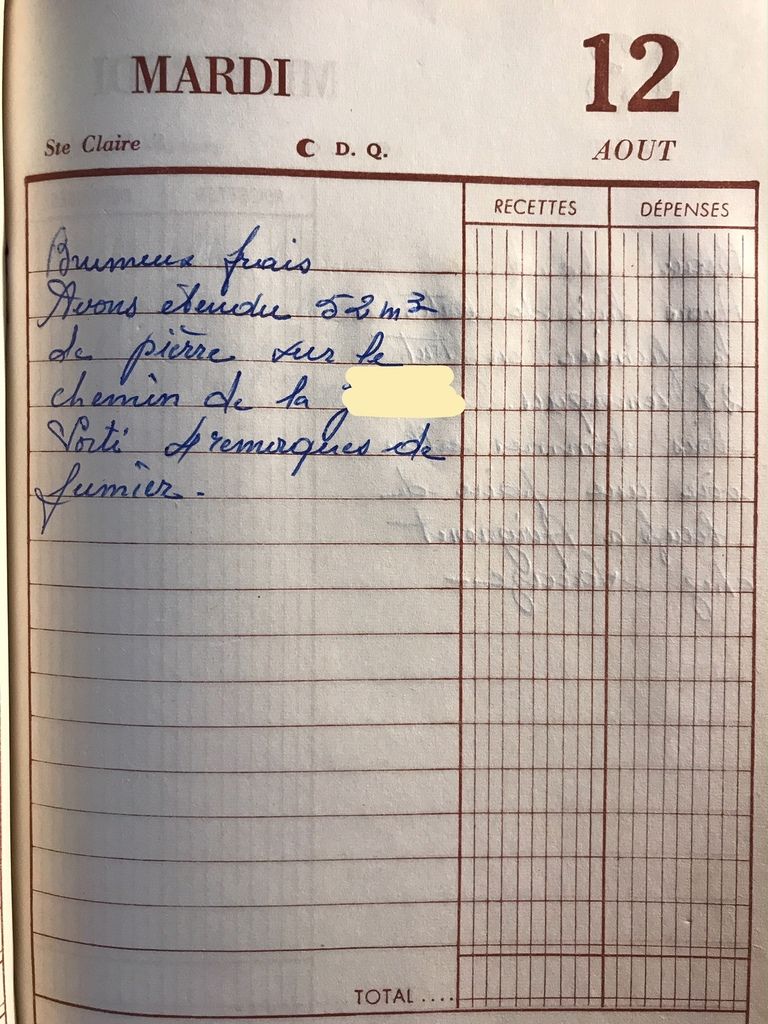 MARDI 12
Ste Claire D. Q. AOUT
RECETTES DÉPENSES
Brumeux frais
Avons étendu 52 m³
de pierre sur le
chemin de la
Sorti 4 remorques de
fumier.
TOTAL ....